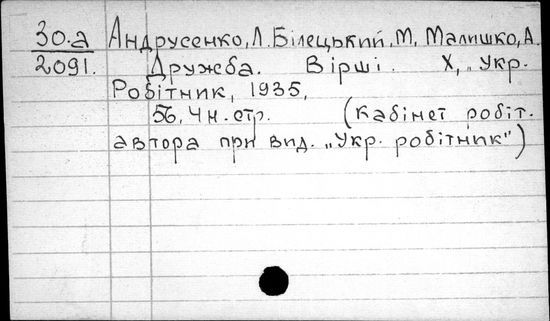 30.а Андрусенко, Л. Білецький, М, Малишко, А.
2091. Дружба. Вірші. Х, „Укр.
Робітник, 1935,
56, 4 н. стр. (Кабінет робіт.
автора при вид. „Укр. робітник")